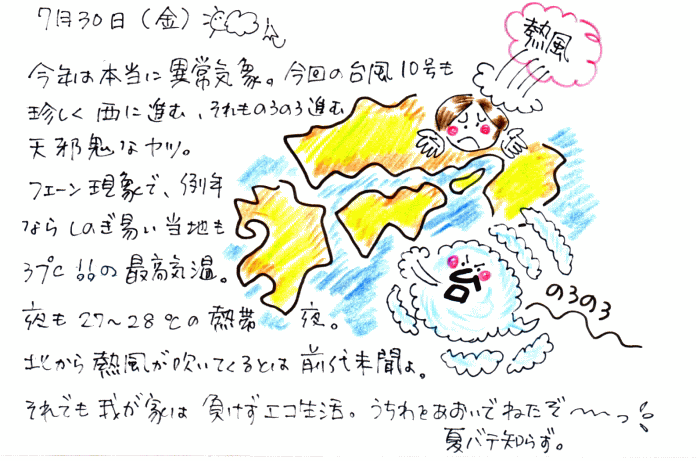 7月30日(金)
熱風
今年は本当に異常気象。今回の台風10号も
珍しく西に進む、それものろのろ進む
天邪鬼なヤツ。
フェーン現象で、例年
ならしのぎ易い当地も
37℃!!の最高気温。
台
のろのろ
夜も27〜28℃の熱帯夜。
北から熱風が吹いてくるとは前代未聞よ。
それでも我が家は負けずエコ生活。うちわをあおいでねたぞ〜〜っ!
夏バテ知らず。